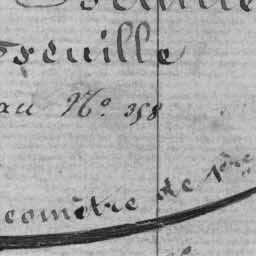 Treuille
au N.º 358
eomêtre de 1ère